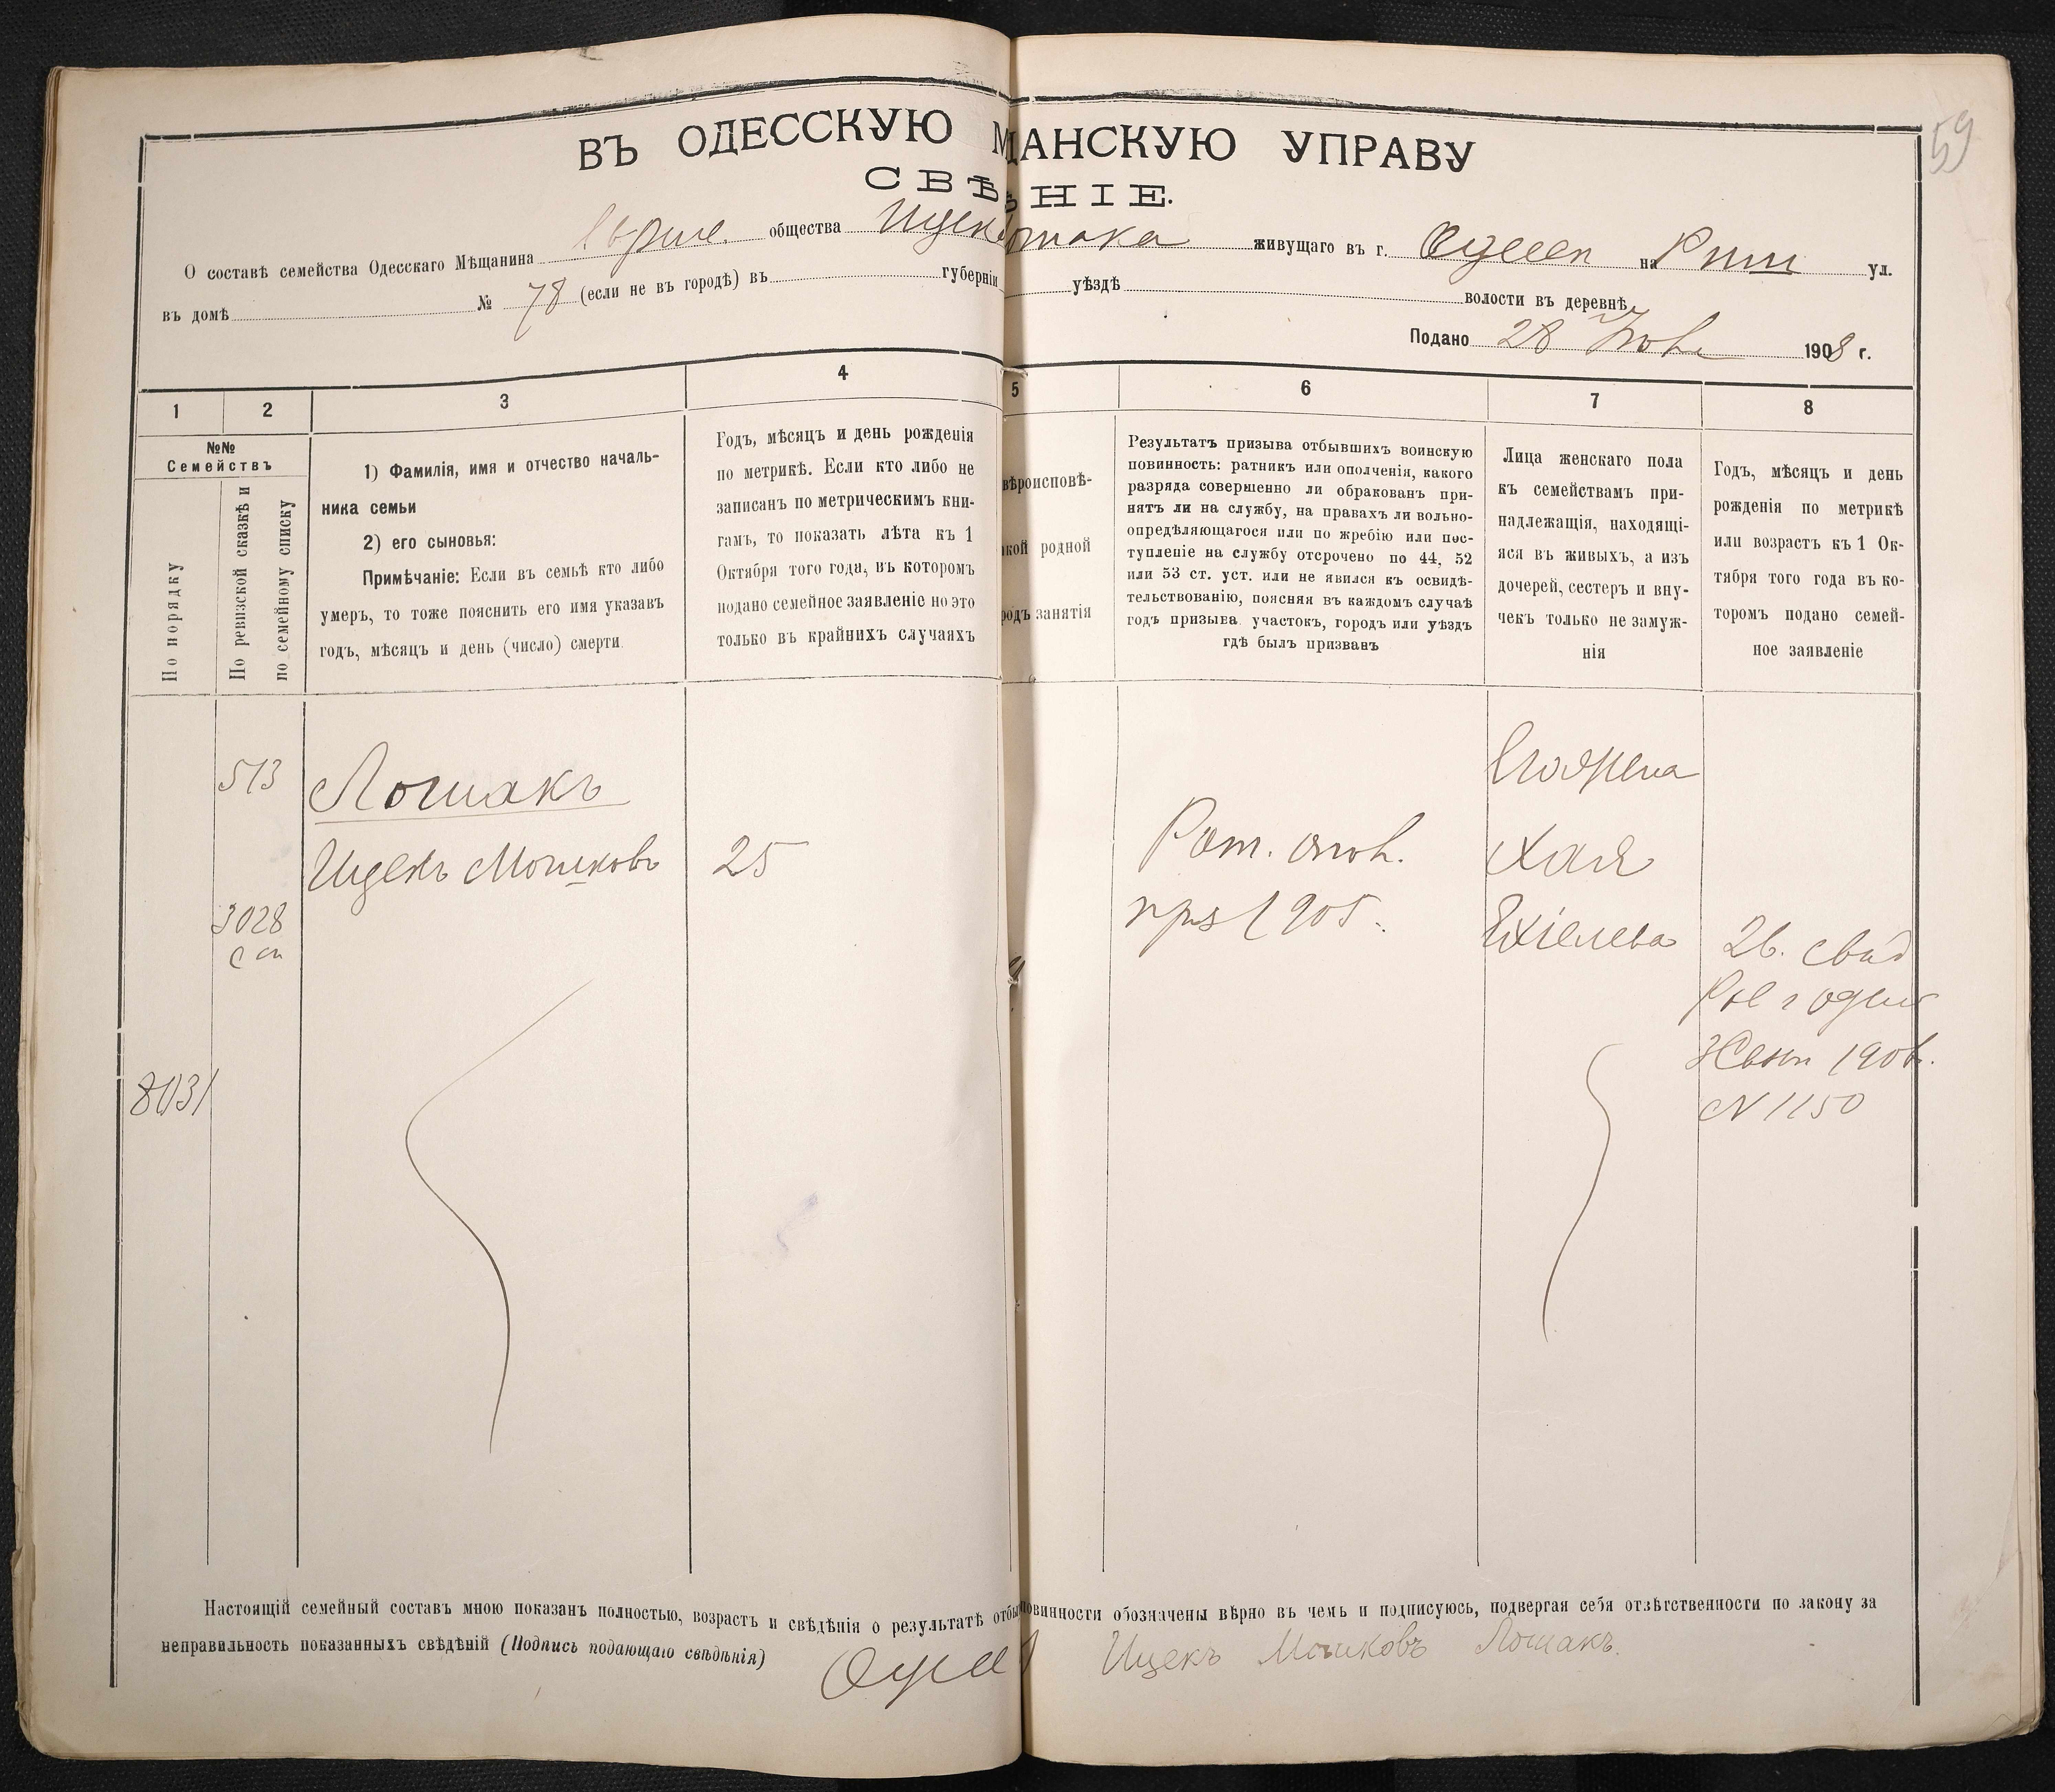 59
ВЪ ОДЕССКУЮ М ЩАНСКУЮ УПРАВУ
СВѢ НІЕ.
О составѣ семейства Одесскаго Мѣщанина общества Ицек Лошака живущаго въ г. на Риш ул.
въ домѣ № 78 (если не въ городѣ) въ губерніи уѣздѣ волости въ деревнѣ
Подано 28 1908 г.
1 2 3 4 5 6 7 8
№№
Семействъ
По порядку
По ревизской сказкѣ и
по семейному списку
1) Фамилія, имя и отчество началь-
ника семьи
2) его сыновья:
Примѣчаніе: Если въ семьѣ кто либо
умеръ, то тоже пояснить его имя указавъ
годъ, мѣсяцъ и день (число) смерти
Годъ, мѣсяцъ и день рожденія
по метрикѣ. Если кто либо не
записанъ по метрическимъ кни-
гамъ, то показать лѣта къ 1
Октября того года, въ которомъ
подано семейное заявленіе но это
только въ крайнихъ случаяхъ
вѣроисповѣ-
акой родной
родъ занятія
Результатъ призыва отбывшихъ воинскую
повинность: ратникъ или ополченія, какого
разряда совершенно ли обракованъ при-
нятъ ли на службу, на правахъ ли вольно-
опредѣляющагося или по жребію или пос-
тупленіе на службу отсрочено по 44, 52
или 53 ст. уст. или не явился къ освидѣ-
тельствованію, поясняя въ каждомъ случаѣ
годъ призыва участокъ, городъ или уѣздъ
гдѣ былъ призванъ
Лица женскаго пола
къ семействамъ при-
надлежащія, находящі-
яся въ живыхъ, а изъ
дочерей, сестеръ и вну-
чекъ только не замуж-
нія
Годъ, мѣсяцъ и день
рожденія по метрикѣ
или возрастъ къ 1 Ок-
тября того года въ ко-
торомъ подано семей-
ное заявленіе
513
Лошакъ
Ицекъ Мошковъ 25
3028
8031
Рат. опол.
1905.
Его жена
Хая
Ихіелева
26. свид
N 1150
Настоящій семейный составъ мною показанъ полностью, возрастъ и свѣдѣнія о результатѣ отбы повинности обозначены вѣрно въ чемъ и подписуюсь, подвергая себя отвѣтственности по закону за
неправильность показанныхъ свѣдѣній (Подпись подающаго свѣдѣнія)
Ицекъ Мошковъ Лошакъ.